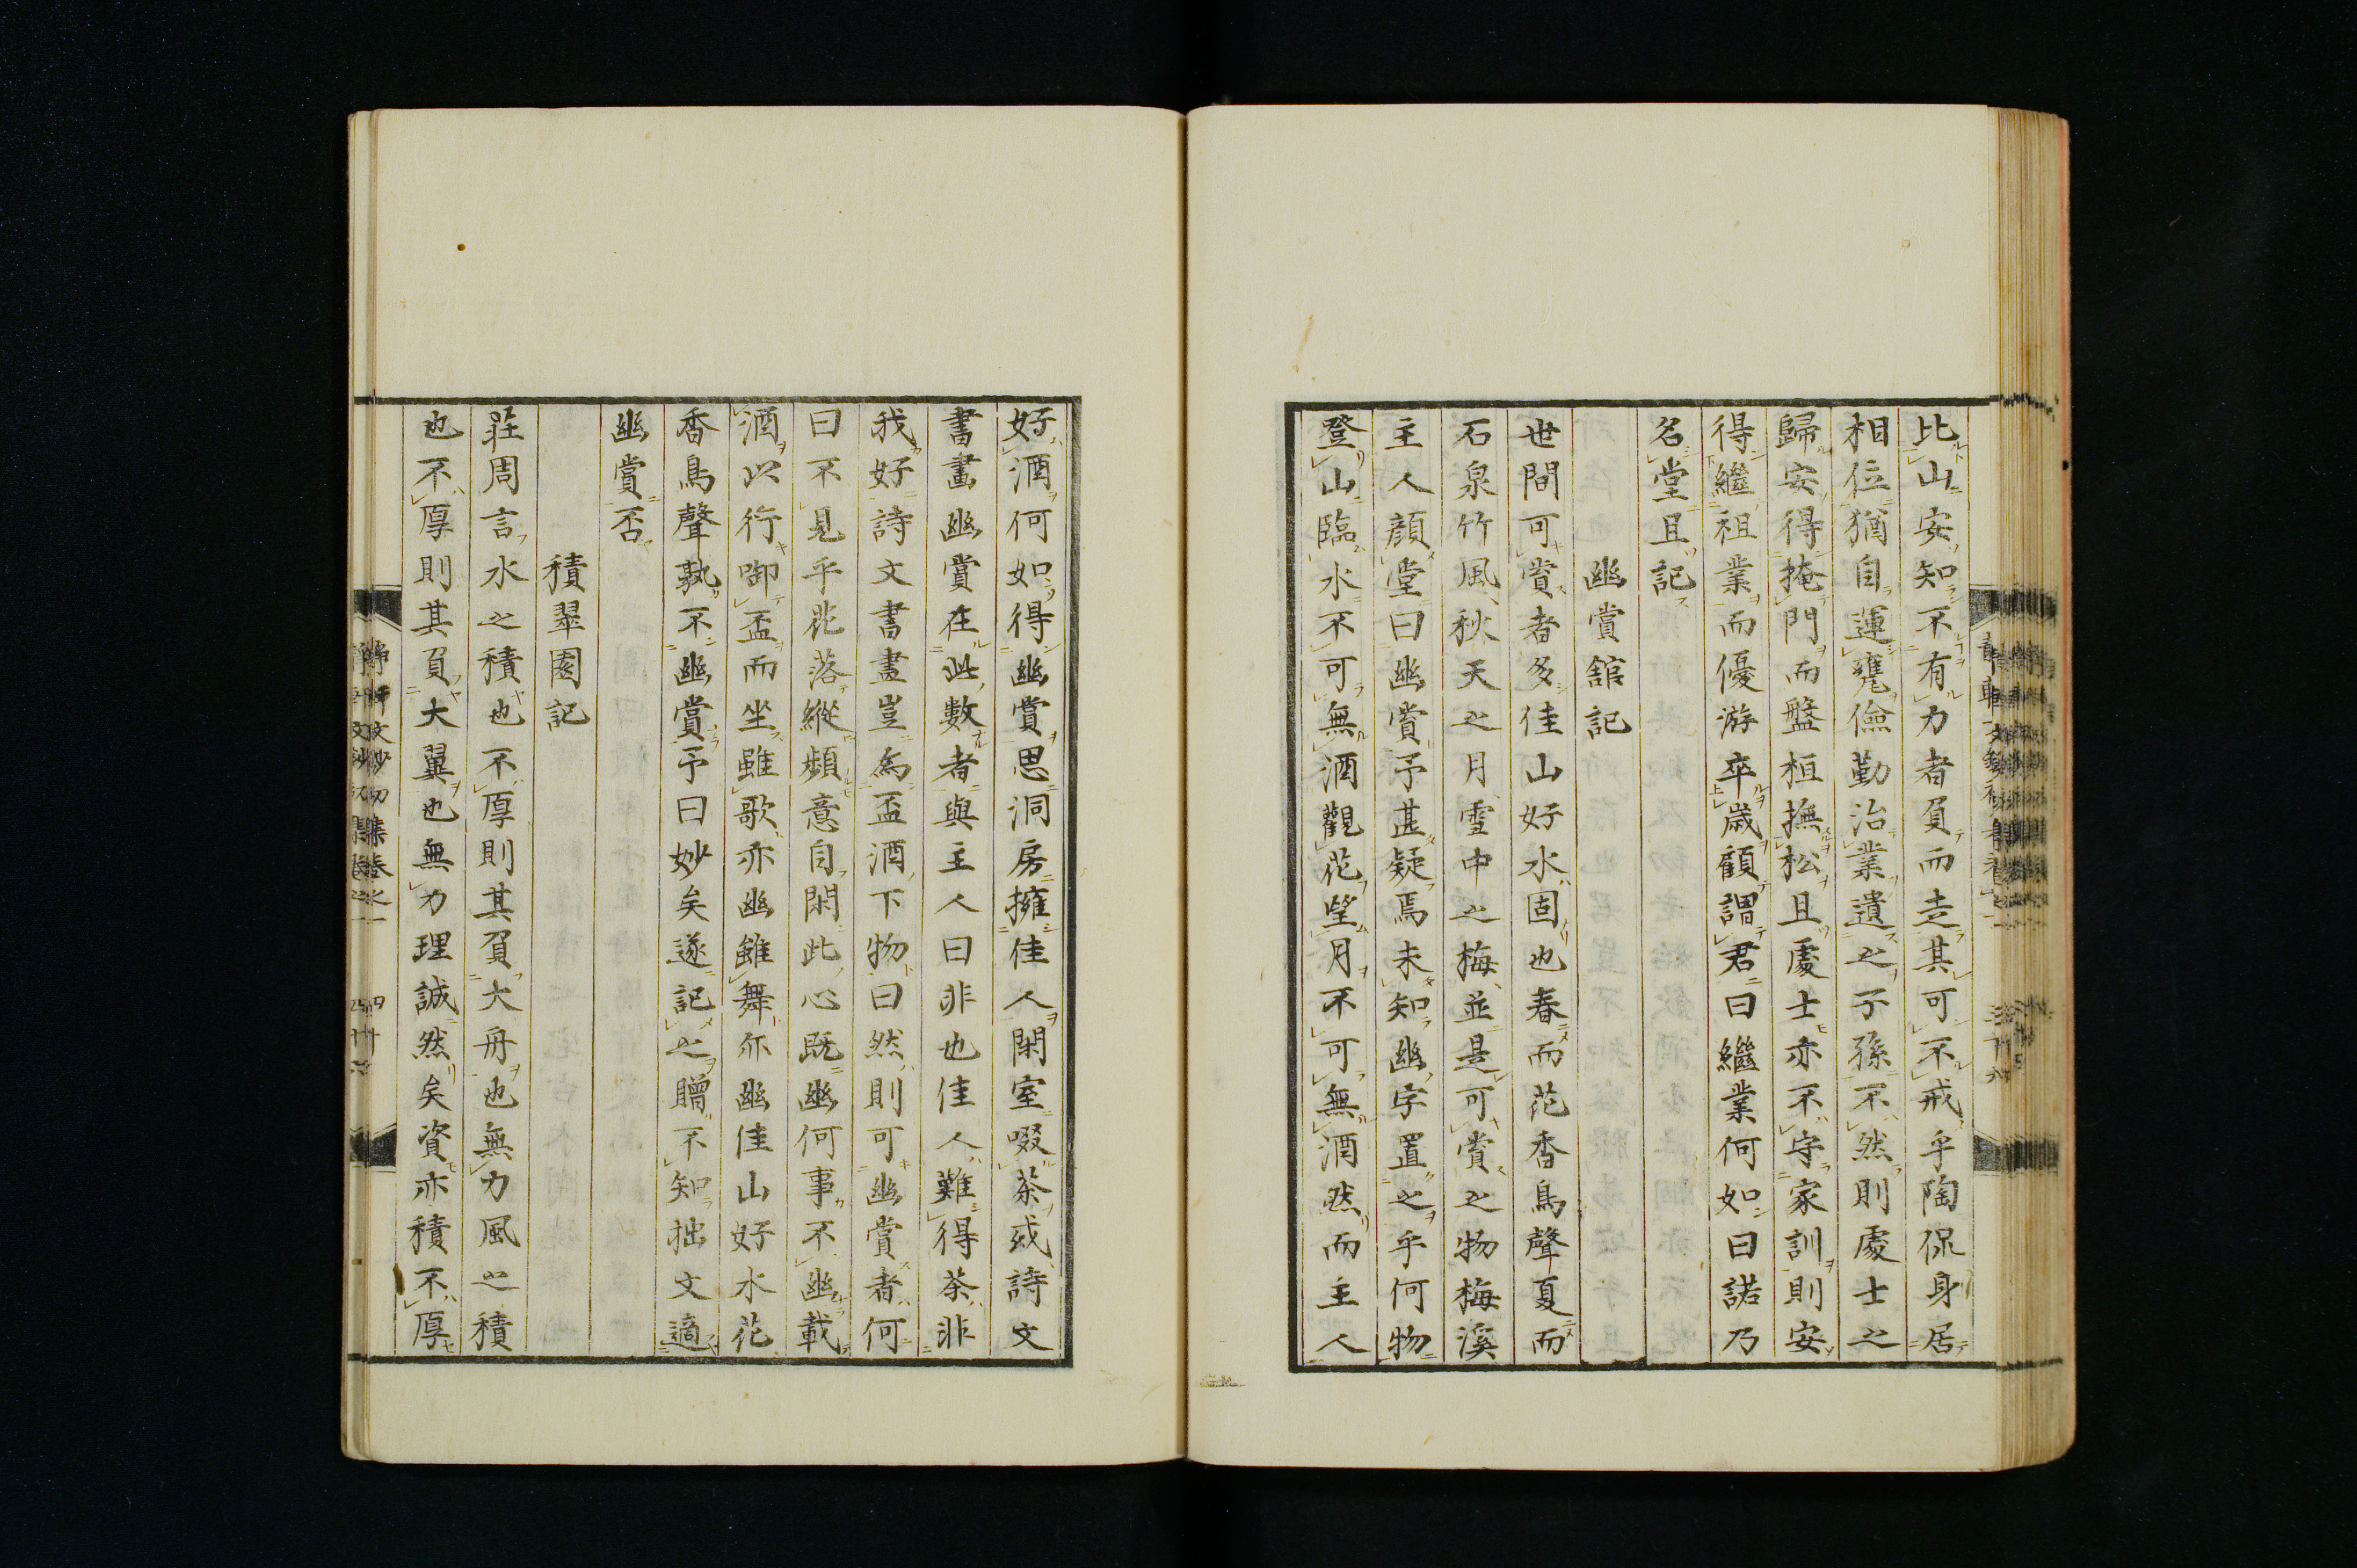 比山安知不有力者負而走其可不戒乎陶侃身居
相位猶自運甓儉勤治業遺之子孫不然則處士之
歸安得掩門而盤桓撫松且處士亦不守家訓則安
得繼祖業而優游卒歲顧謂君曰繼業何如曰諾乃
名堂且記
幽賞舘記
世間可賞者多佳山好水固也春而花香鳥聲夏而
石泉竹風秋天之月雪中之梅並是可賞之物梅溪
主人顔堂曰幽賞予甚疑焉未知幽字置之乎何物
登山臨水不可無酒觀花望月不可無酒然而主人
好酒何如得幽賞思洞房擁佳人閑室啜茶或詩文
書畫幽賞在此數者與主人曰非也佳人難得茶非
我好詩文書畫豈為盃酒下物曰然則可幽賞者何
曰不見乎花落縱頻意自閑此心既幽何事不幽載
酒以行啣盃而坐雖歌亦幽雖舞亦幽佳山好水花
香鳥聲孰不幽賞予曰妙矣遂記之贈不知拙文適
幽賞否
積翠園記
莊周言水之積也不厚則其負大舟也無力風之積
也不厚則其負大翼也無力理誠然矣資亦積不厚